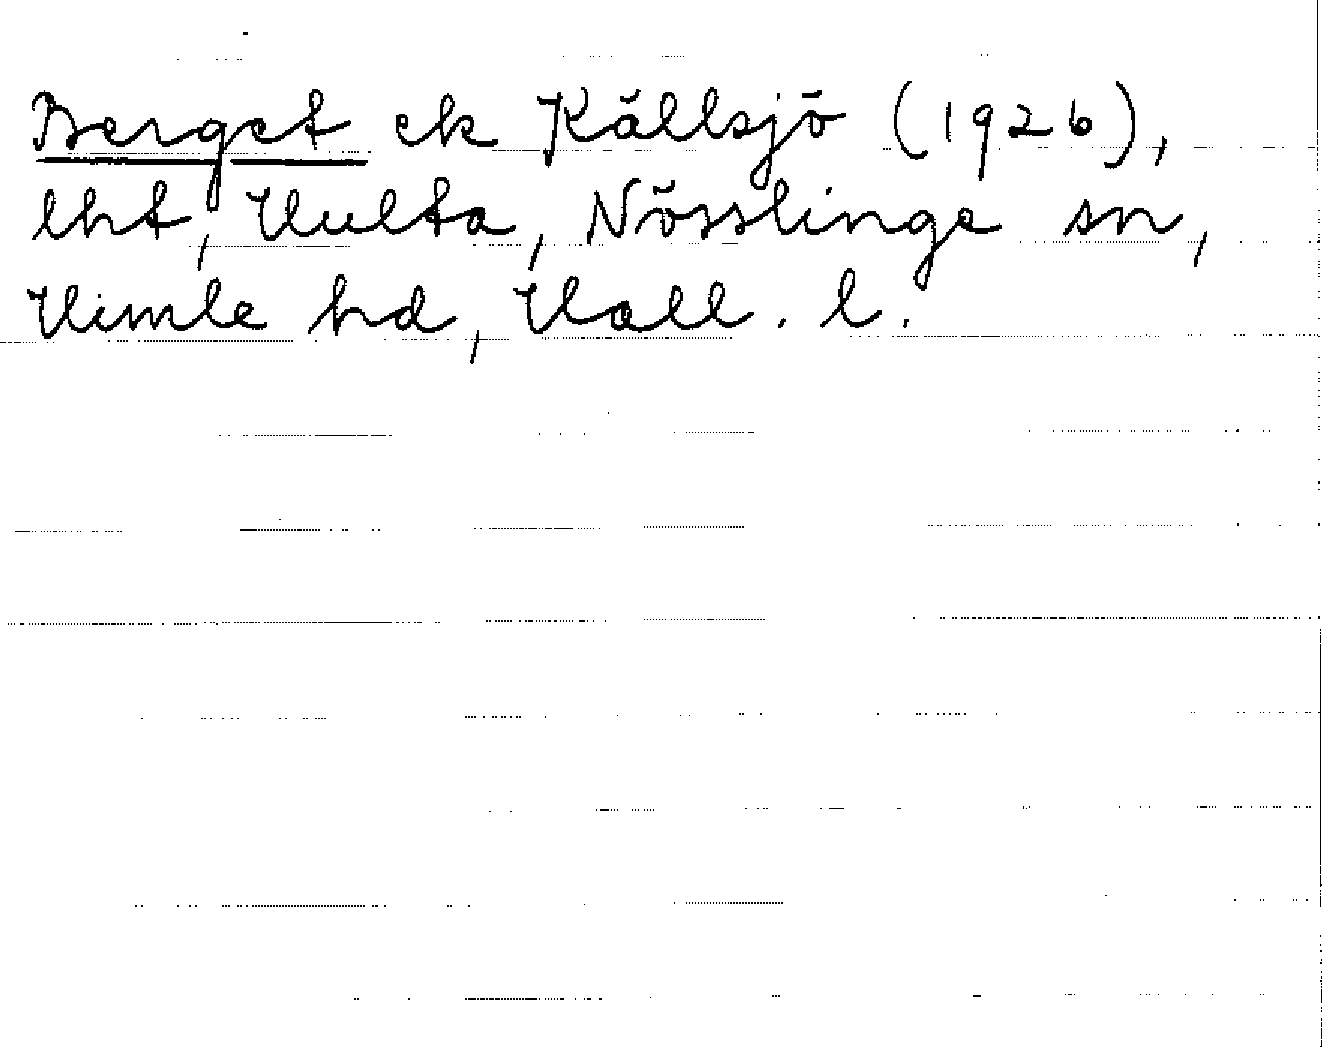 Berget ek Källsjö (1926),
lht, Hulta, Nösslinge sn,
Himle hd, Hall. l.